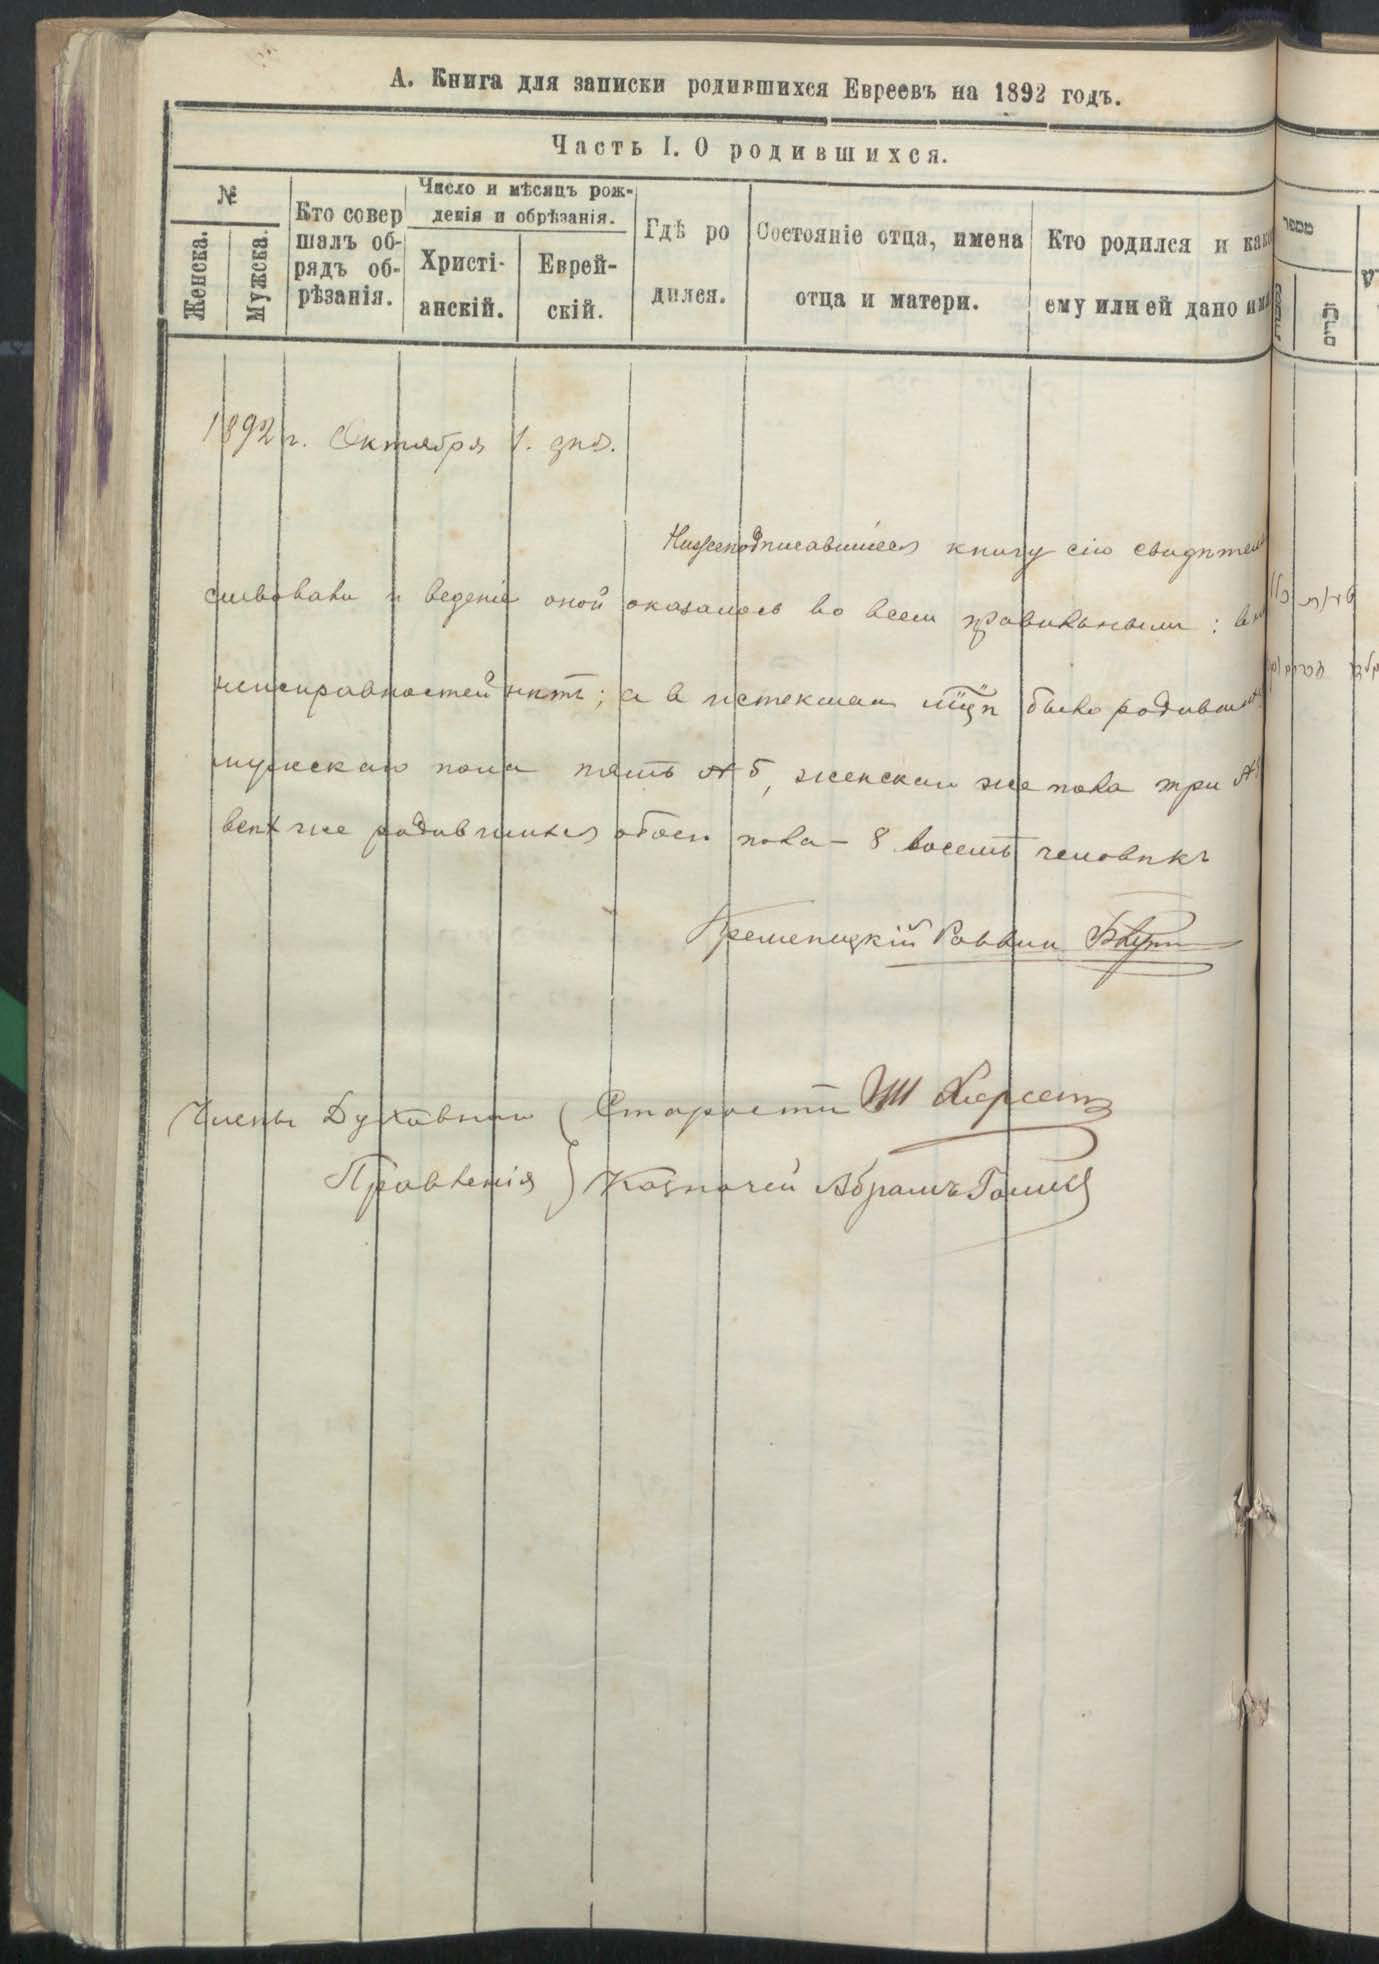 А. Книга для записки родившихся Евреевъ на 1892 годъ.
Часть I. О родившихся.
№
Женска.
Мужска.
Кто совер
шалъ об-
рядъ об-
рѣзанія.
Число и мѣсяцъ рож-
денія и обрѣзанія.
Христі-
анскій.
Еврей-
скій.
Гдѣ ро
дился.
Состояніе отца, имена
отца и матери.
Кто родился и како
ему или ей дано им
מספר
1892 г. Октября 1. дня.
Нижеподписавшіеся книгу сію свидѣтель
ствовали и веденіе оной оказалось во всем правильным: в
неисправностей нѣтъ; а в истекшем было родивш
мужскаго пола пять №5, женскаго же пола три №
всѣх же родившихся обоего пола — 8 восемь человѣкъ
Кременецкій Раввин
Члены Духовнаго
Правленія
Староста Ш Херсен
Казначей Абрамъ